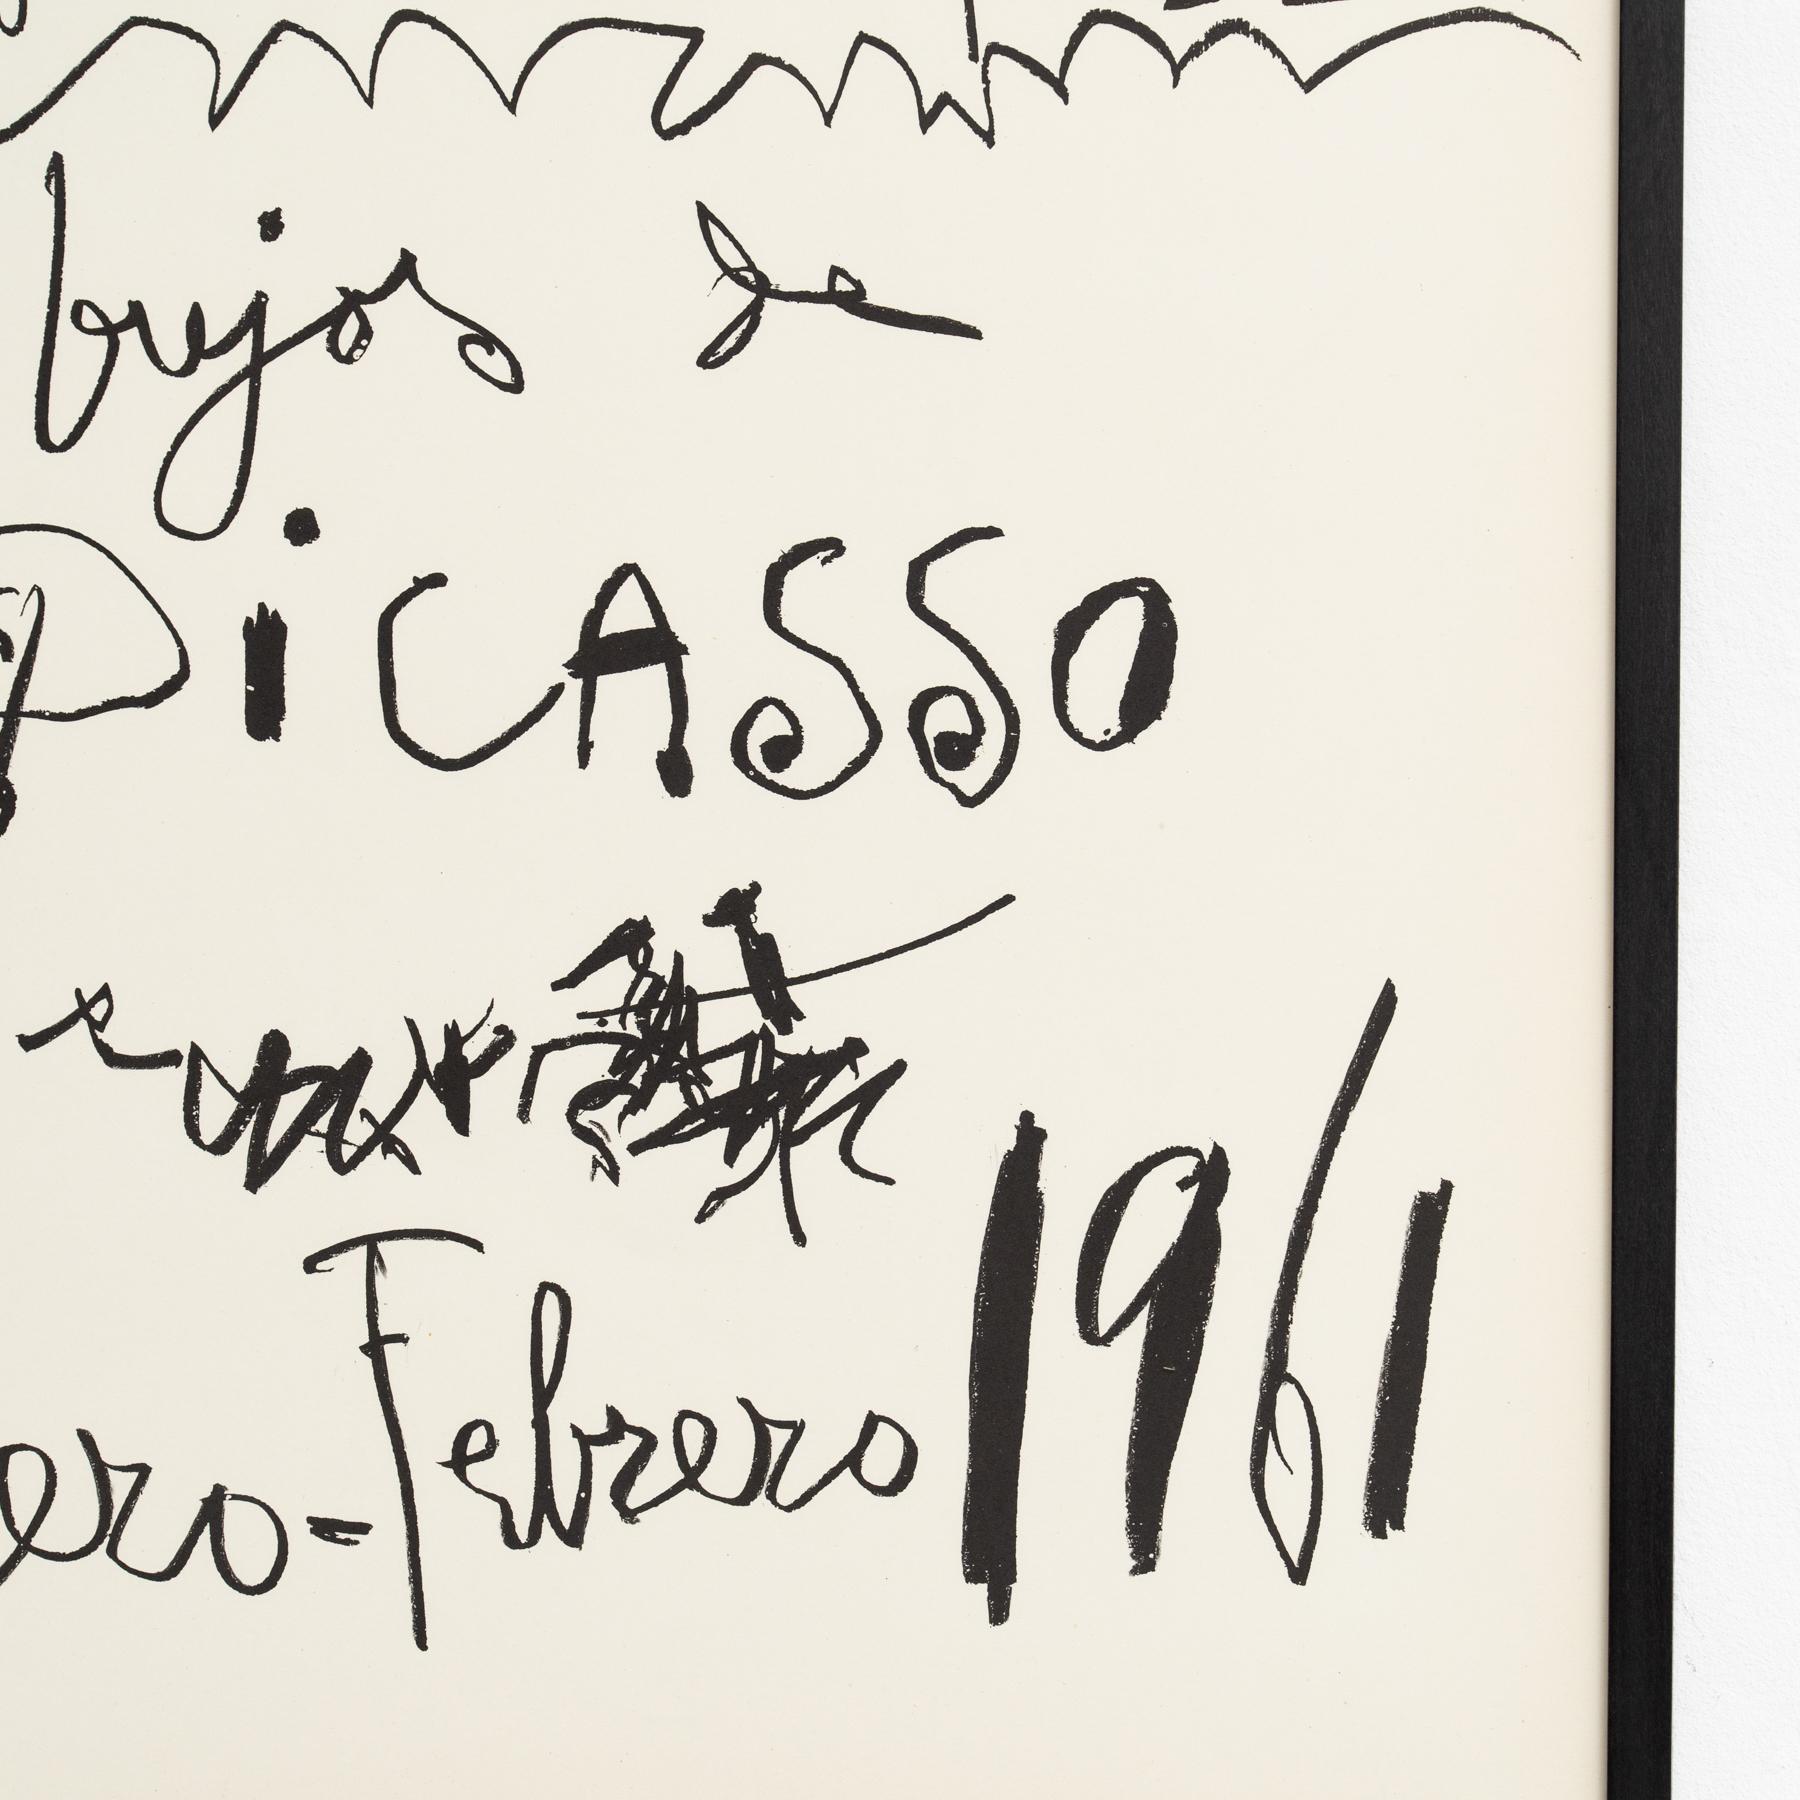 bujos de
PiCASSO
ero-Febrero 1961